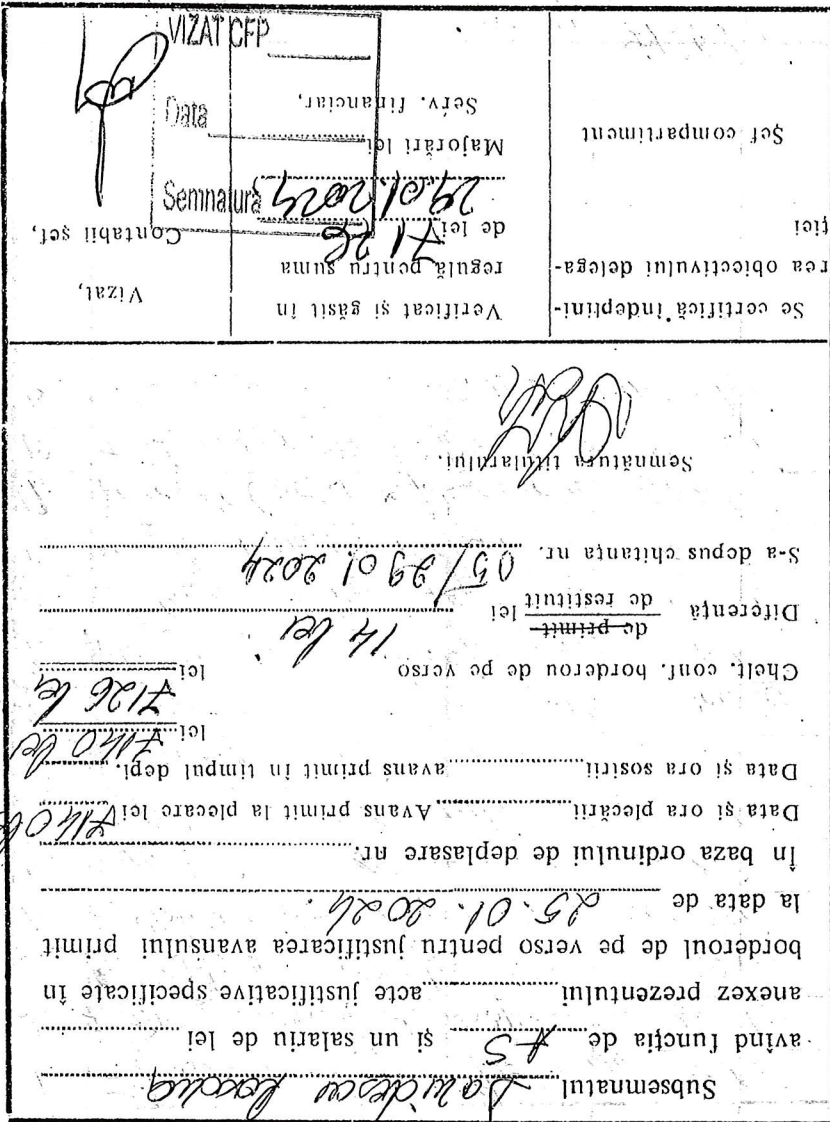 Subsemnatul Davidescu Rodica
avînd funcţia de AS şi un salariu de lei
anexez prezentului acte justificative specificate în
borderoul de pe verso pentru justificarea avansului primit
la data de 25.01.2024.
În baza ordinului de deplasare nr.
Data şi ora plecării Avans primit la plecare lei 7140
Data şi ora sosirii avans primit în timpul depl.
lei 7140 lei
Chelt. conf. borderou de pe verso lei 7126 lei
Diferenţa de primit
de restituit lei 14 lei
S-a depus chitanţa nr. 05/29 01 2024
Semnătura titularului.
Se certifică îndeplini-
rea obiectivului delega-
ţiei
Şef compartiment
Verificat şi găsit în
regulă pentru suma
de lei 7126
29.01.2024
Majorări lei
Serv. financiar,
Vizat,
Contabil şef,
Semnatura
Data
VIZAT CFP